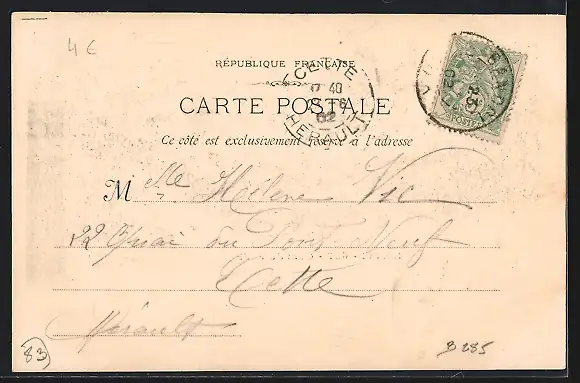 4€
RÉPUBLIQUE FRANÇAISE
CETTE
17 40
02
HERAULT
CARTE POSTALE
Ce côté est exclusivement réservé à l'adresse
POSTES
Mlle Hélène Vic
22 Quai du Pont Neuf
Cette
Hérault
83
B285